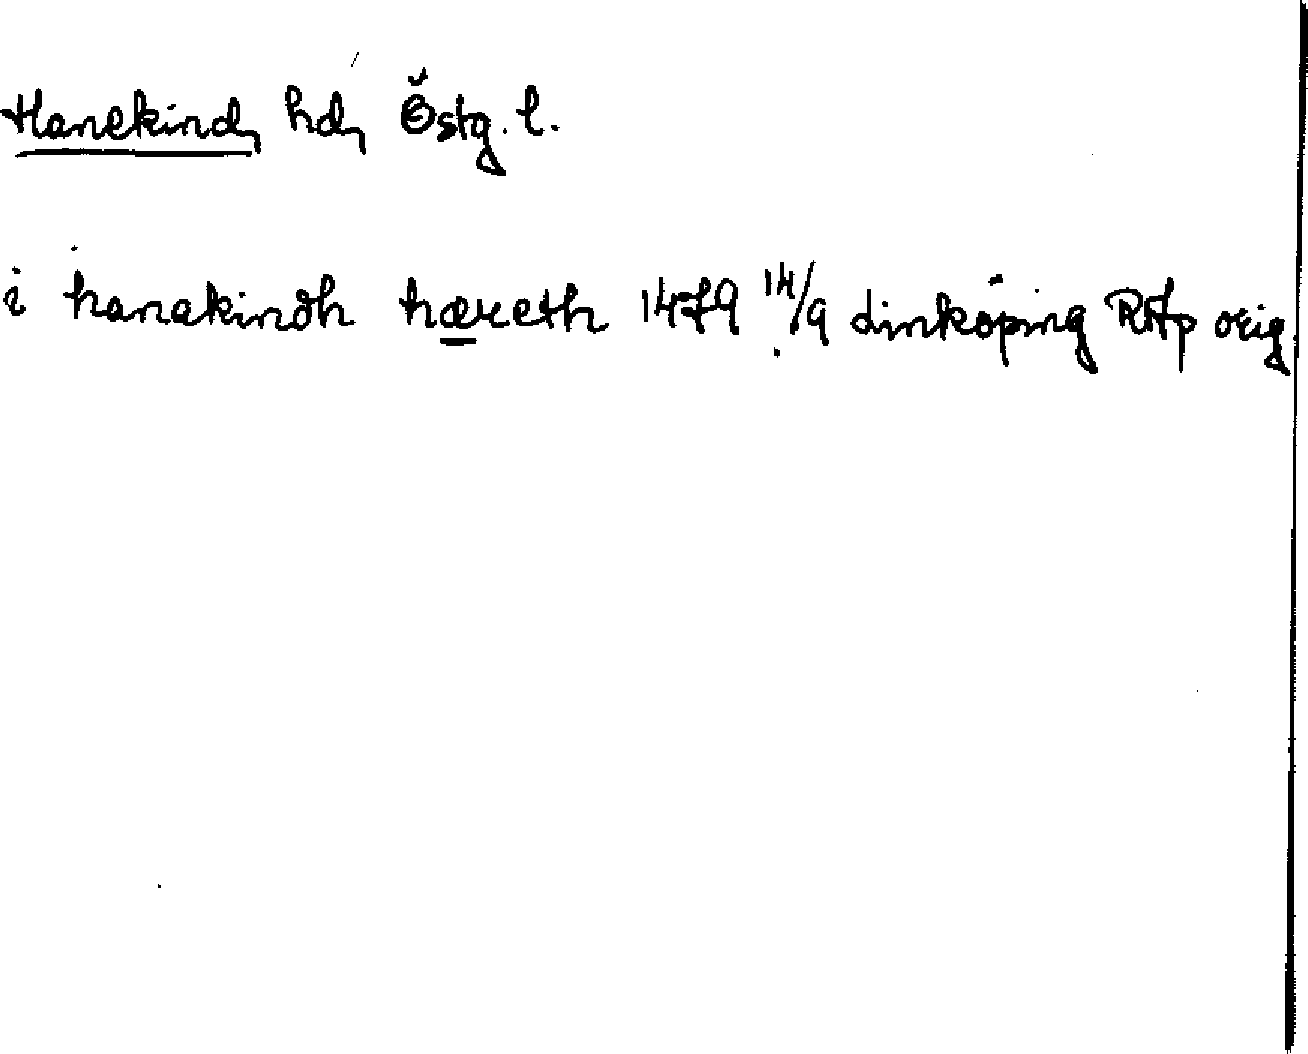 Hanekind, hd, Östg. l.
i hanakindh hæreth 1479 14/9 Linköping RAp orig